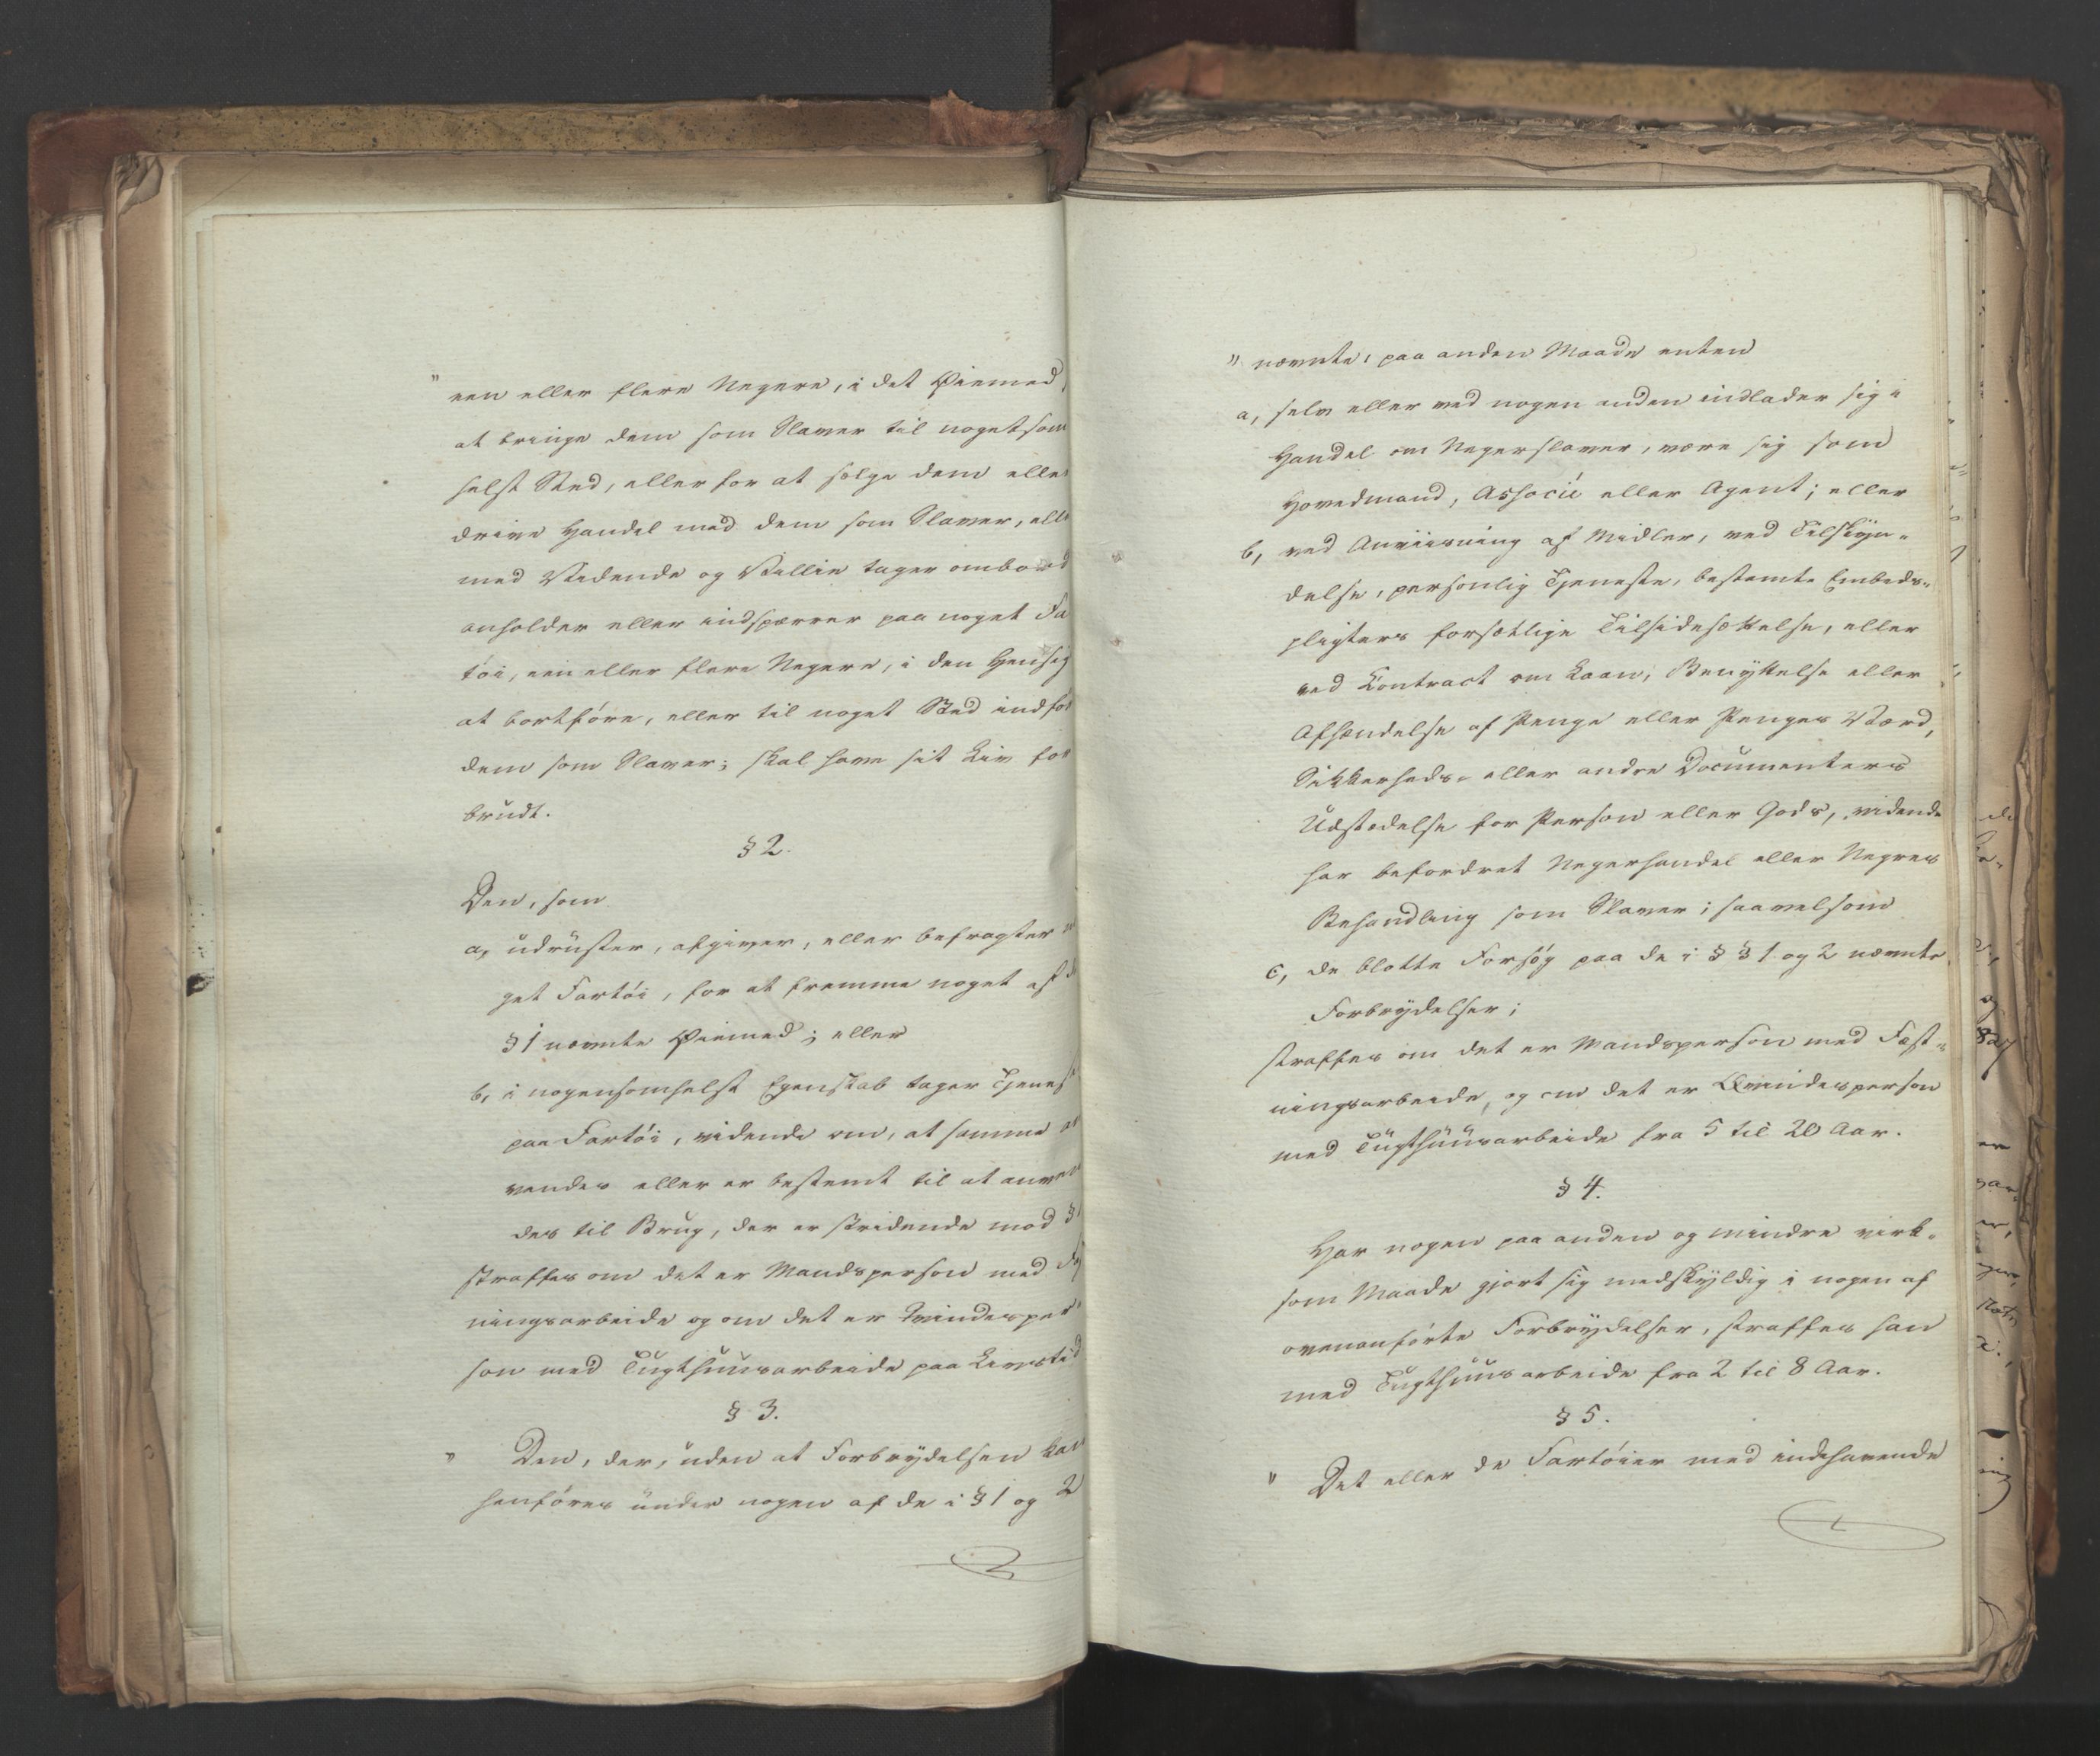 " een eller flere Negere, i det Øiemed,
at bringe dem som Slaver til nogetsom
helst Sted, eller for at sælge dem eller
drive Handel med dem som Slaver, elle
med Vidende og Villie tager ombord
anholder eller indspærrer paa noget Fa
tøi, een eller flere Negere, i den Hensig
at bortføre, eller til noget Sted indfør
dem som Slaver; skal have sit Liv for
brudt.
§ 2.
Den, som
a, udruster, afgiver, eller befragter n
get Fartøi, for at fremme noget af d
§ 1 nævnte Øiemed; eller
b, i nogensomhelst Egenskab tager Tjenes
paa Fartøi, vidende om, at samme an
vendes eller er bestemt til at anven
des til Brug, der er stridende mod §
straffes om det er Mandsperson med
ningsarbeide og om det er Qvindesper
son med Tugthuusarbeide paa Livstid
§ 3.
" Den, der, uden at Forbrydelsen kan
henføres under nogen af de i § 1 og 2
" nævnte, paa anden Maade enten
a, selv eller ved nogen anden indlader sig i
Handel om Negerslaver, være sig som
Hovedmand, Associé eller Agent; eller
b, ved Anviisning af Midler, ved Tilskyn-
delse, personlig Tjeneste, bestemte Embeds-
pligters forsætlige Tilsidesættelse, eller
ved Contract om Laan, Benyttelse eller
Afhændelse af Penge eller Penges Værd,
Sikkerheds- eller andre Documenters
Udstædelse for Person eller Gods, vidende
har befordret Negerhandel eller Negres
Behandling som Slaver; saavelsom
c, de blotte Forsøg paa de i § § 1 og 2 nævnte
Forbrydelser;
straffes om det er Mandsperson med Fæst-
ningsarbeide, og om det er Qvindesperson
med Tugthuusarbeide fra 5 til 20 Aar.
§ 4.
Har nogen paa anden og mindre virk-
som Maade gjort sig medskyldig i nogen af
ovenanførte Forbrydelser, straffes han
med Tugthuusarbeide fra 2 til 8 Aar.
§ 5.
" Det eller de Fartøier med indehavende